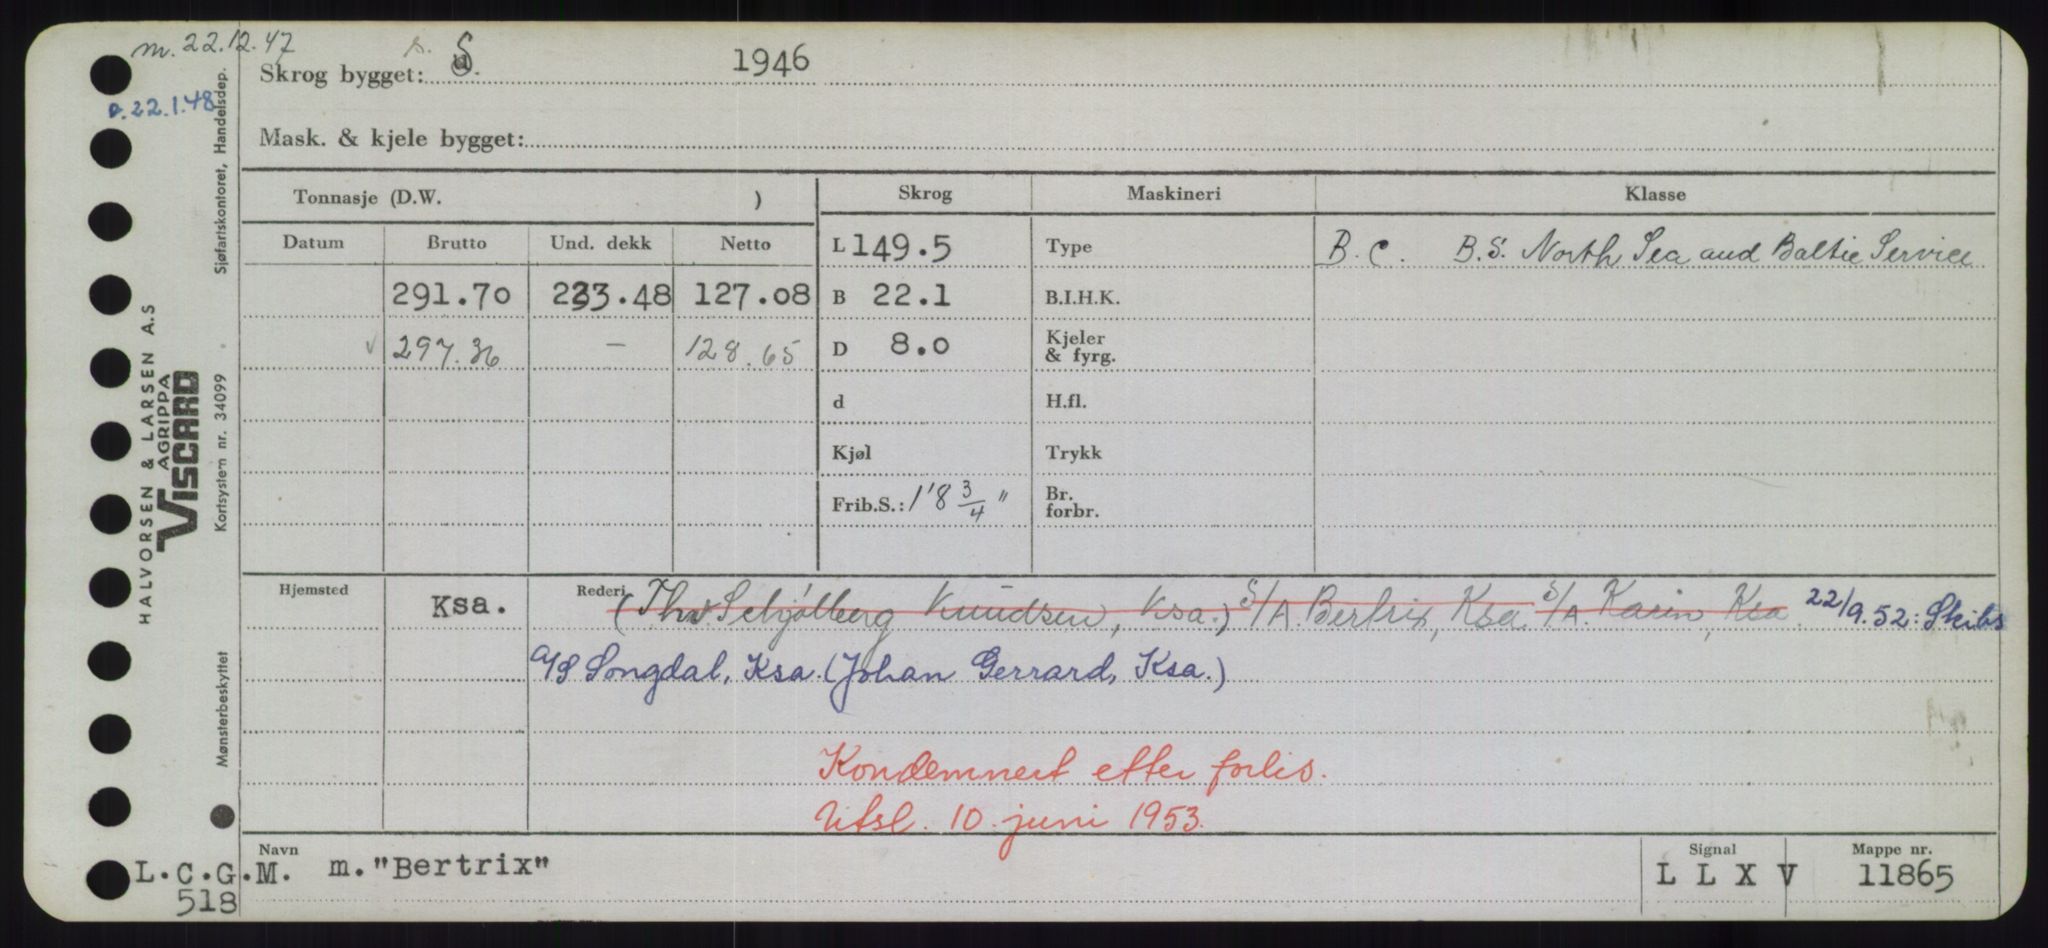 m. 22.12.47
o. 22.1.48
Skrog bygget: S. 1946
Mask. & kjele bygget:
Tonnasje (D.W. )
Skrog
Maskineri
Klasse
Datum Brutto Und. dekk Netto
L 149.5
Type
B.C. B.S. North Sea and Baltic Service
291.70 233.48 127.08
B 22.1
B.I.H.K.
297.36 — 128.65
D 8.0
Kjeler
& fyrg.
d
H.fl.
Kjøl
Trykk
Frib.S.: 1'8 3/4"
Br.
forbr.
Hjemsted Ksa. Rederi (Thv. Schjølberg Knudsen, Ksa.) S/A. Bertrix, Ksa. S/A. Karin, Ksa. 22/9.52: Skibs
A/S Songdal, Ksa. (Johan Gerrard, Ksa.)
Kondemnert etter forlis.
Utsl. 10. juni 1953.
Navn
L.C.G.M. m. "Bertrix"
518
Signal
L L X V
Mappe nr.
11865
HALVORSEN & LARSEN A.S
AGRIPPA
VISCARD
Sjøfartskontoret, Handelsdep.
Kortsystem nr. 34099
Mønsterbeskyttet